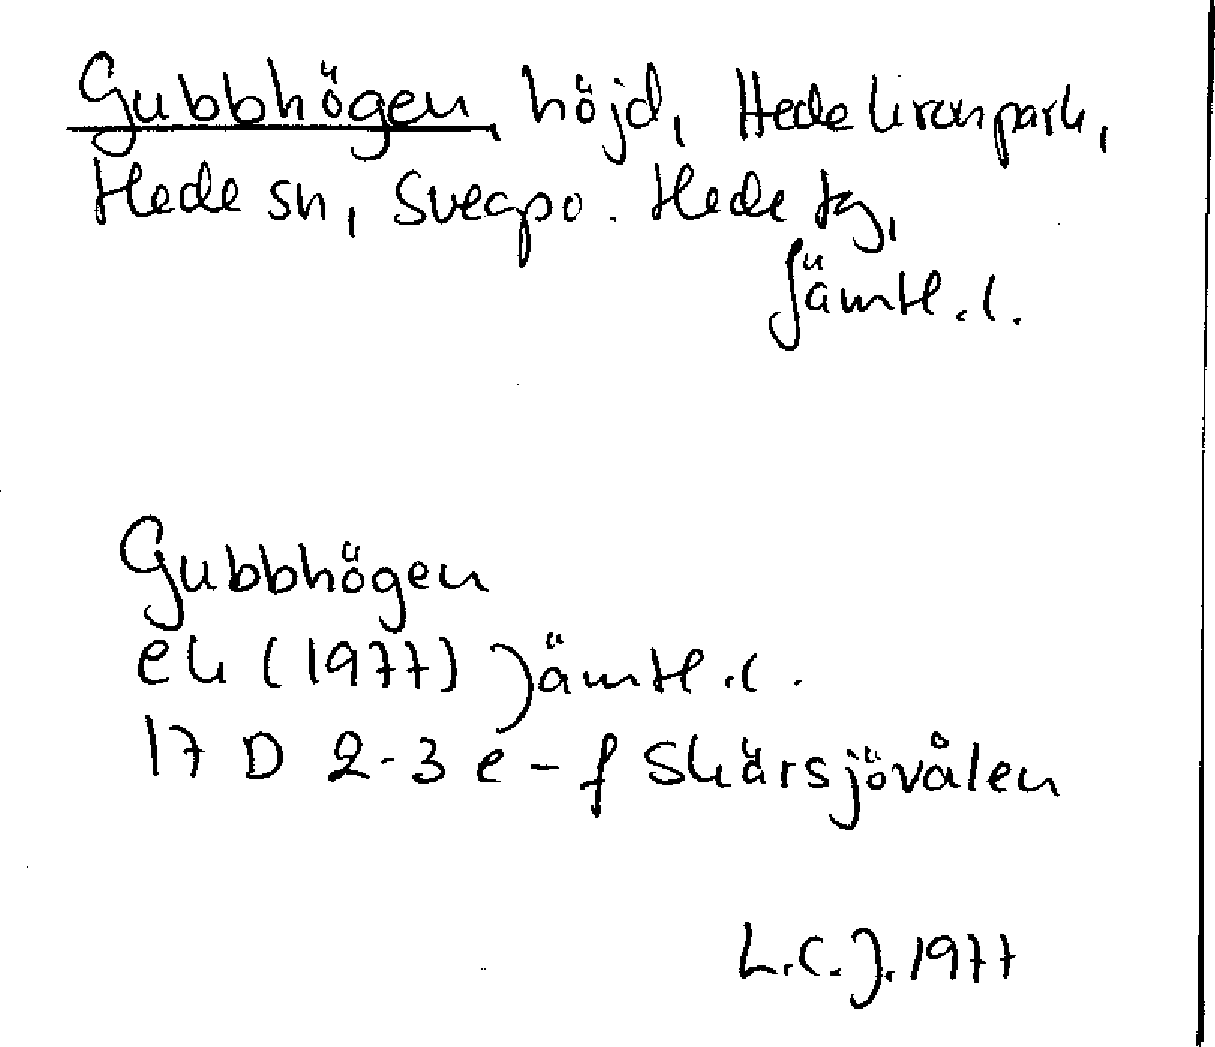 Gubbhögen, höjd, Hede kronpark,
Hede sn, Svegpo. Hede tg,
Jämtl. l.
Gubbhögen
ek (1977) Jämtl. l.
17 D 2-3 e-f Skärsjövålen
L.C.J. 1977